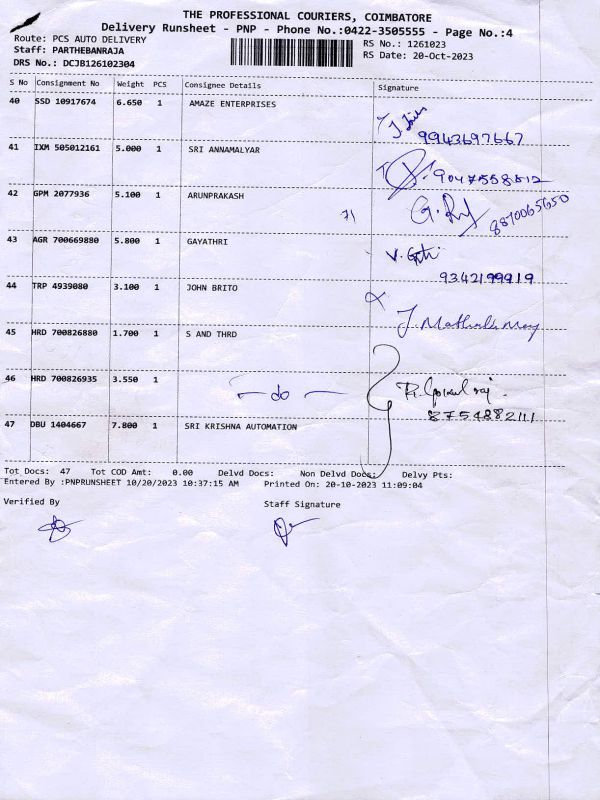 THE PROFESSIONAL COURIERS, COIMBATORE
Delivery Runsheet - PNP - Phone No.:0422-3505555 - Page No.:4
Route: PCS AUTO DELIVERY
RS No.: 1261023
Staff: PARTHEBANRAJA
RS Date: 20-Oct-2023
DRS No.: DCJB126102304
S No Consignment No Weight PCS Consignee Details Signature
40 SSD 10917674 6.650 1 AMAZE ENTERPRISES
9943697667
41 IXM 505012161 5.000 1 SRI ANNAMALYAR
9047558512
42 GPM 2077936 5.100 1 ARUNPRAKASH
71
8870065650
43 AGR 700669880 5.800 1 GAYATHRI
9342199919
44 TRP 4939080 3.100 1 JOHN BRITO
45 HRD 700826880 1.700 1 S AND THRD
46 HRD 700826935 3.550 1
- do -
8754882111
47 DBU 1404667 7.800 1 SRI KRISHNA AUTOMATION
Tot Docs: 47 Tot COD Amt: 0.00 Delvd Docs: Non Delvd Docs: Delvy Pts:
Entered By :PNPRUNSHEET 10/20/2023 10:37:15 AM Printed On: 20-10-2023 11:09:04
Verified By
Staff Signature